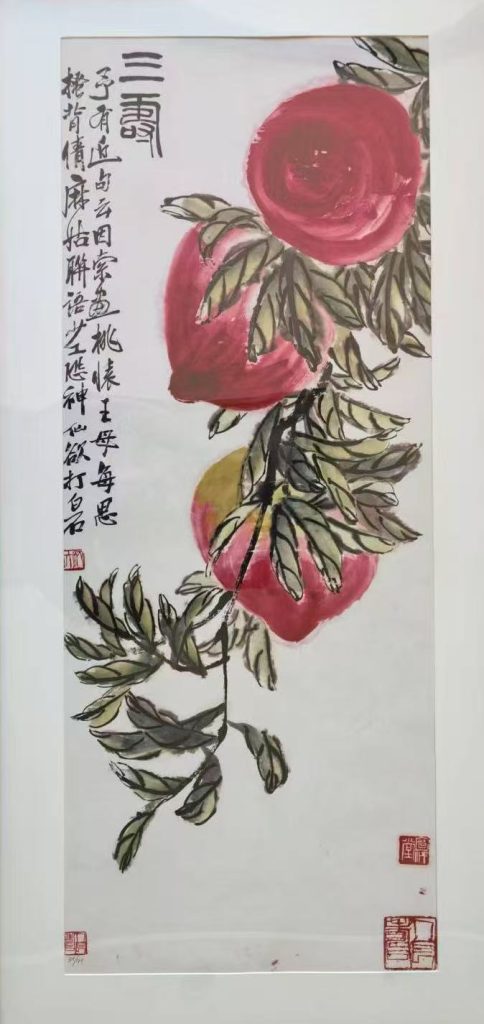 三壽
予有近句云因索畫桃懷王母每思
搔背債麻姑聯語空慫神仙欲打白石